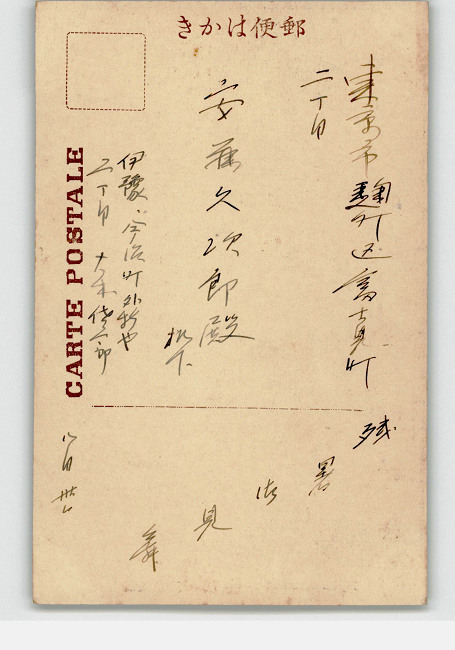 きかは便郵
東京市麹町区富士見町
二丁目
安藤久次郎殿
机下
伊豫今治町外新や
二丁目
CARTE POSTALE
残暑御見舞
八月卅